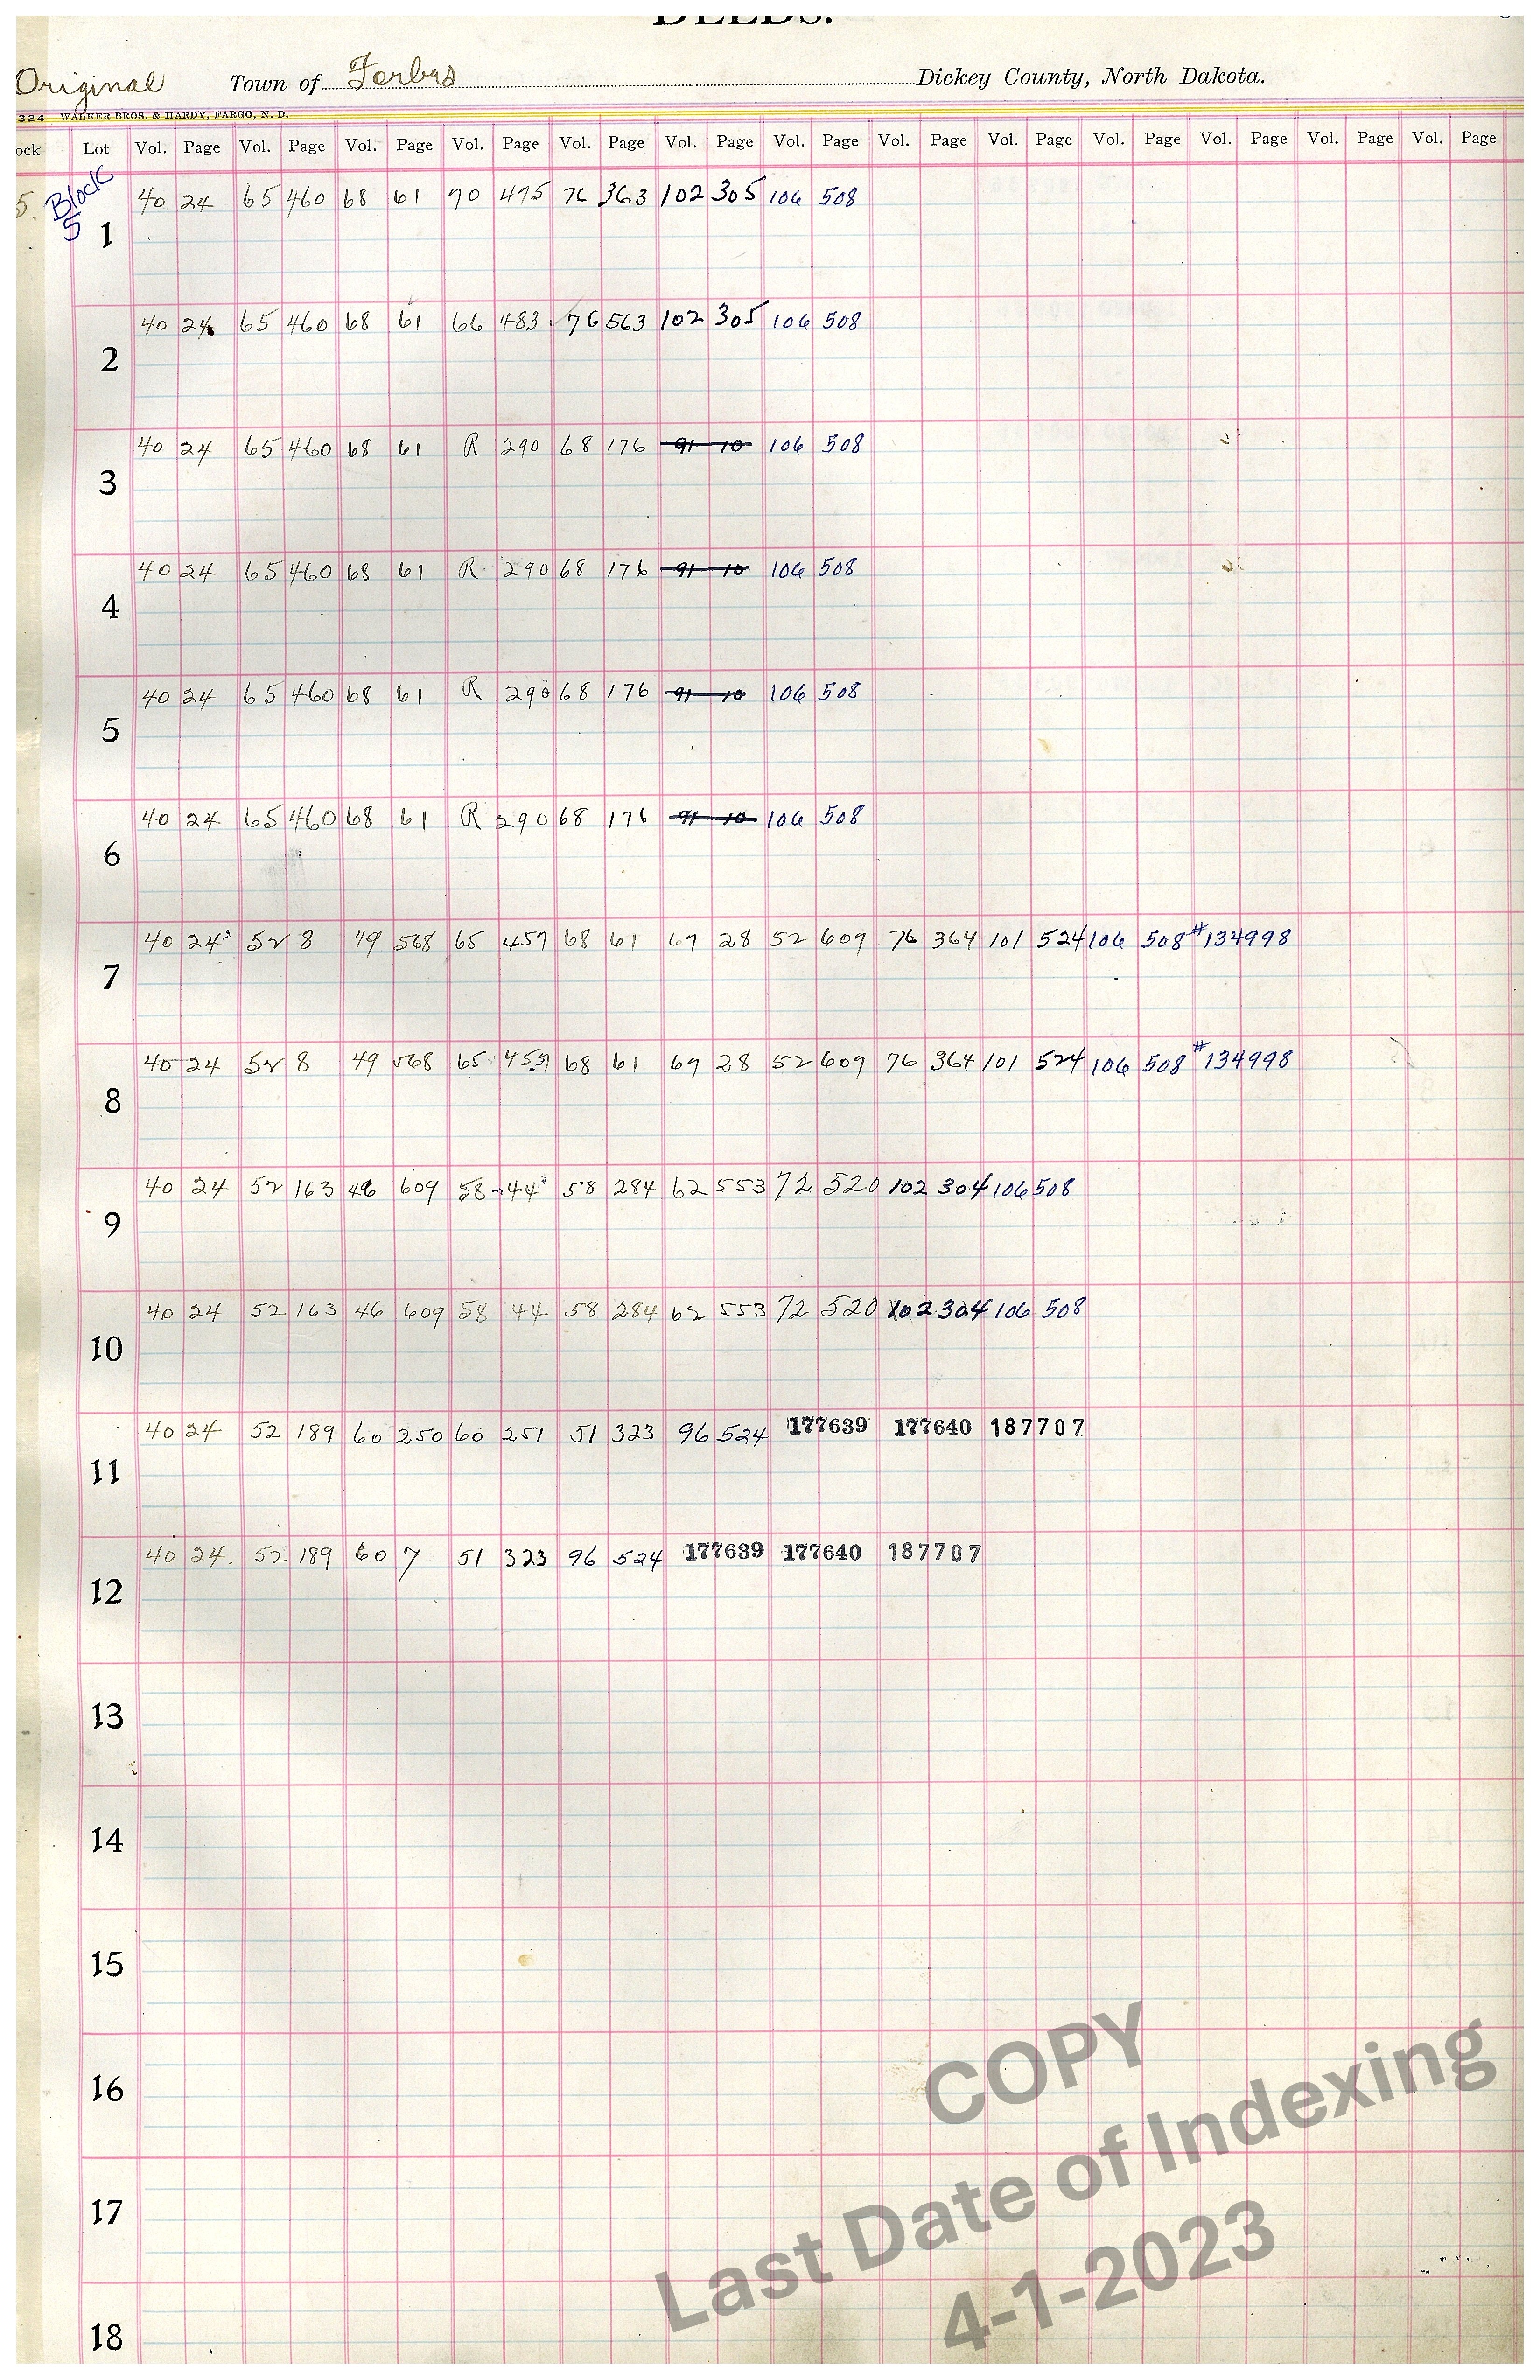 DEEDS.
Original Town of Forbes Dickey County, North Dakota.
324 WALKER BROS. & HARDY, FARGO, N. D.
ock Lot Vol. Page Vol. Page Vol. Page Vol. Page Vol. Page Vol. Page Vol. Page Vol. Page Vol. Page Vol. Page Vol. Page Vol. Page Vol. Page
5. Block 5
1 40 24 65 460 68 61 70 475 76 363 102 305 106 508
2 40 24 65 460 68 61 66 483 76 563 102 305 106 508
3 40 24 65 460 68 61 R 290 68 176 91 10 106 508
4 40 24 65 460 68 61 R 290 68 176 91 10 106 508
5 40 24 65 460 68 61 R 290 68 176 91 10 106 508
6 40 24 65 460 68 61 R 290 68 176 91 10 106 508
7 40 24 52 8 49 568 65 457 68 61 69 28 52 609 76 364 101 524 106 508 #134998
8 40 24 52 8 49 568 65 457 68 61 69 28 52 609 76 364 101 524 106 508 #134998
9 40 24 52 163 46 609 58 44 58 284 62 553 72 520 102 304 106 508
10 40 24 52 163 46 609 58 44 58 284 62 553 72 520 102 304 106 508
11 40 24 52 189 60 250 60 251 51 323 96 524 177639 177640 187707
12 40 24 52 189 60 7 51 323 96 524 177639 177640 187707
13
14
15
16
17
18
COPY
Last Date of Indexing
4-1-2023